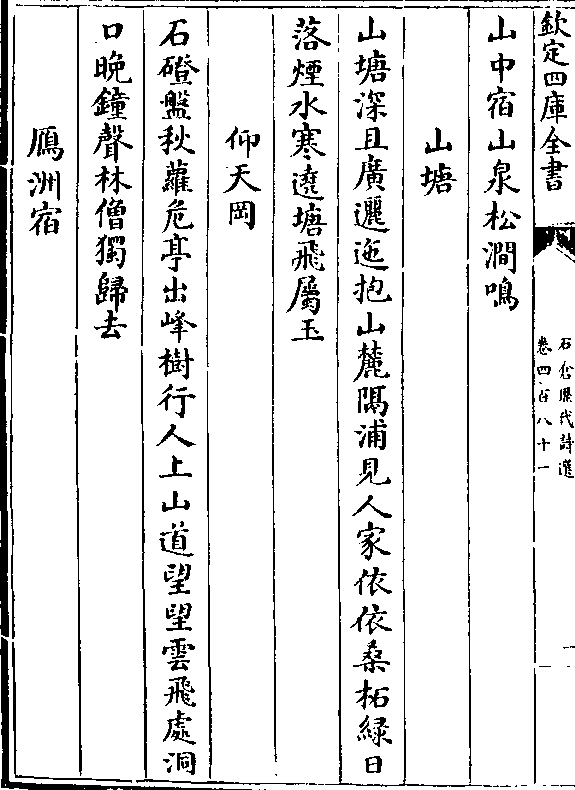 欽定四庫全書
石倉歷代詩選
卷四百八十一
一
山中宿山泉松澗鳴
山塘
山塘深且廣邐迤抱山麓隔浦見人家依依桑柘緑日
落煙水寒遶塘飛屬玉
仰天岡
石磴盤秋蘿危亭出峰樹行人上山道望望雲飛處洞
口晩鐘聲林僧獨歸去
鴈洲宿